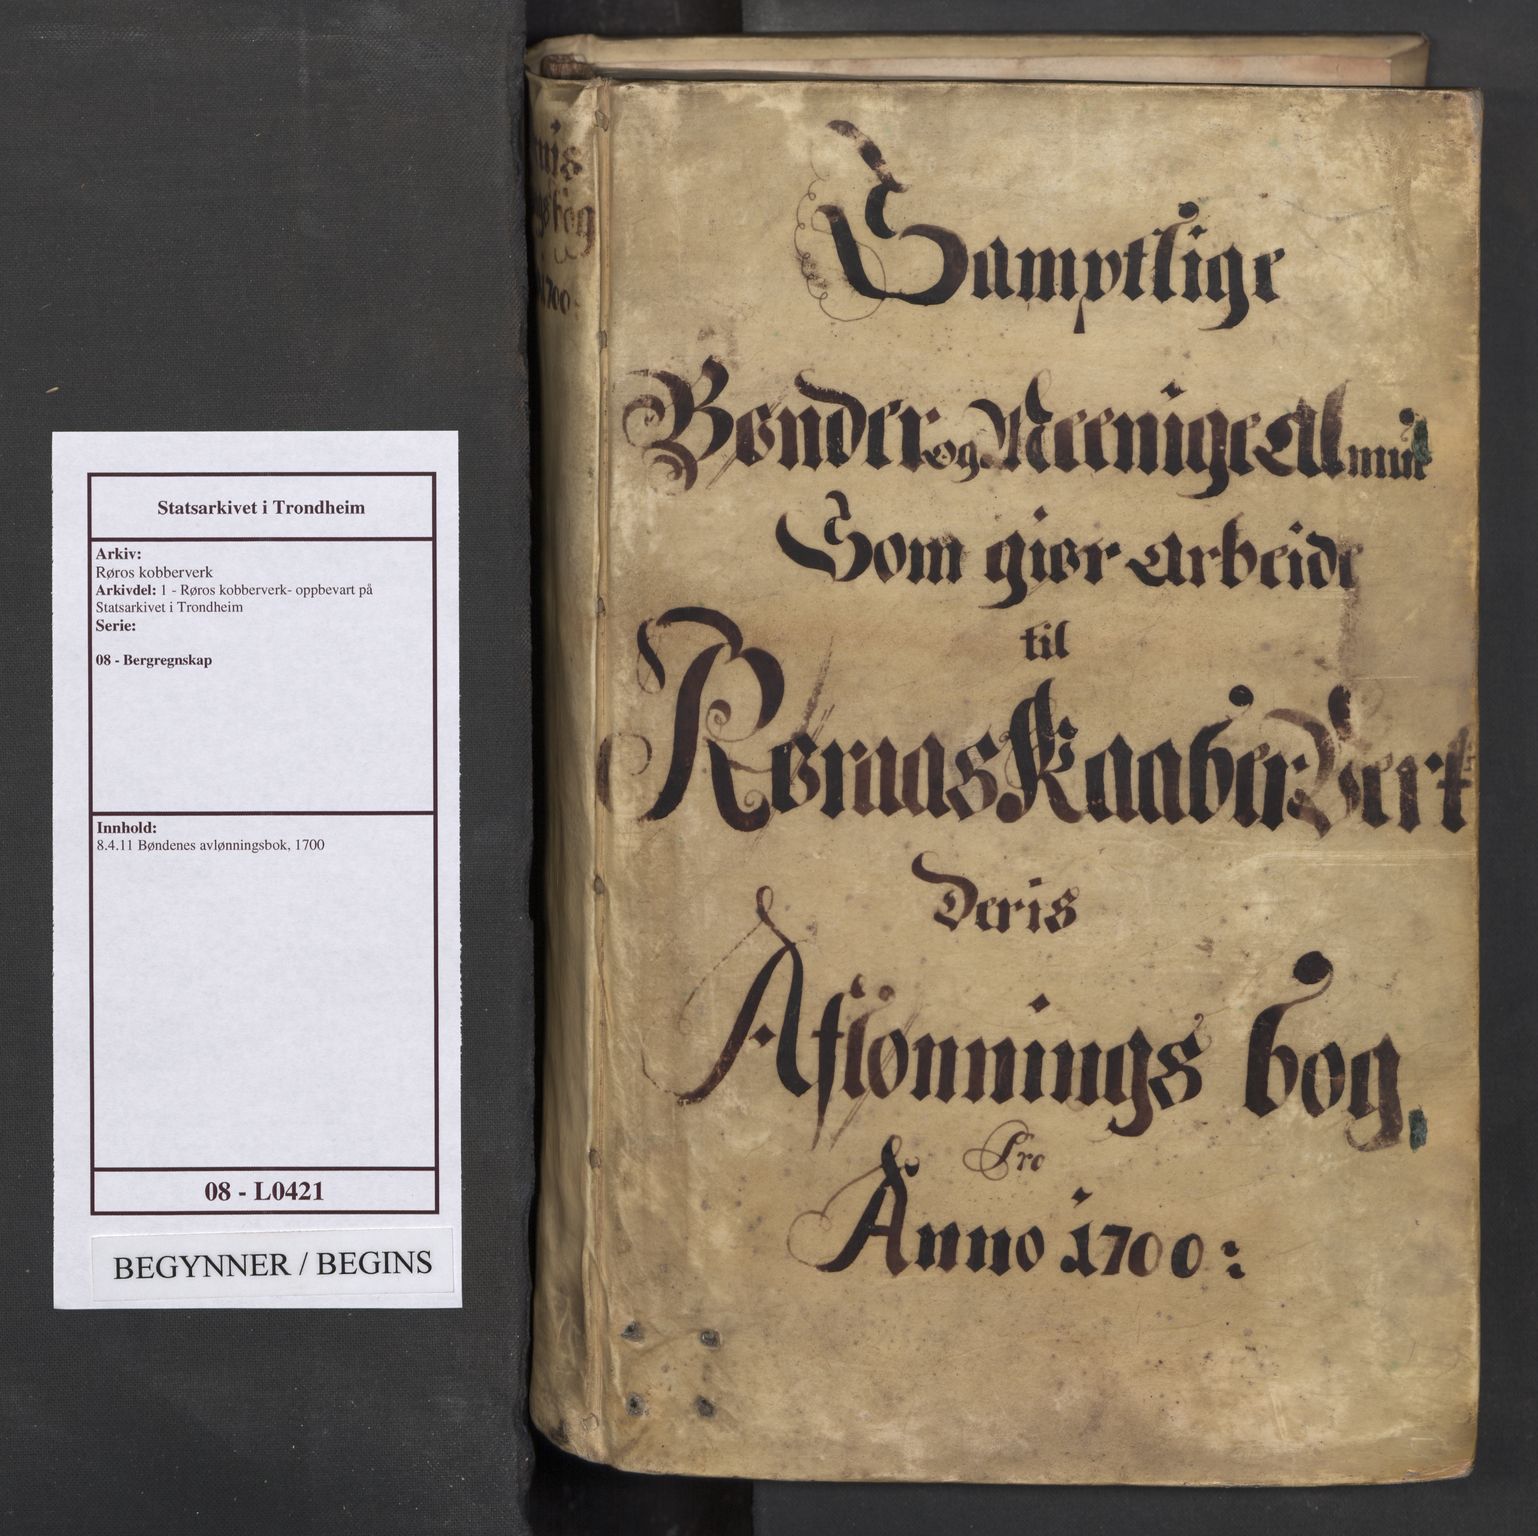 Statsarkivet i Trondheim
Arkiv:
Røros kobberverk
Arkivdel: 1 - Røros kobberverk- oppbevart på
Statsarkivet i Trondheim
Serie:
08 - Bergregnskap
Innhold:
8.4.11 Bøndenes avlønningsbok, 1700
08 - L0421
BEGYNNER / BEGINS
1700:
Samptlige
Bønder og Meenige Almue
Som giør Arbeide
til
Røraas Kaaber Verk
Deris
Aflønnings bog
Pro
Anno 1700: